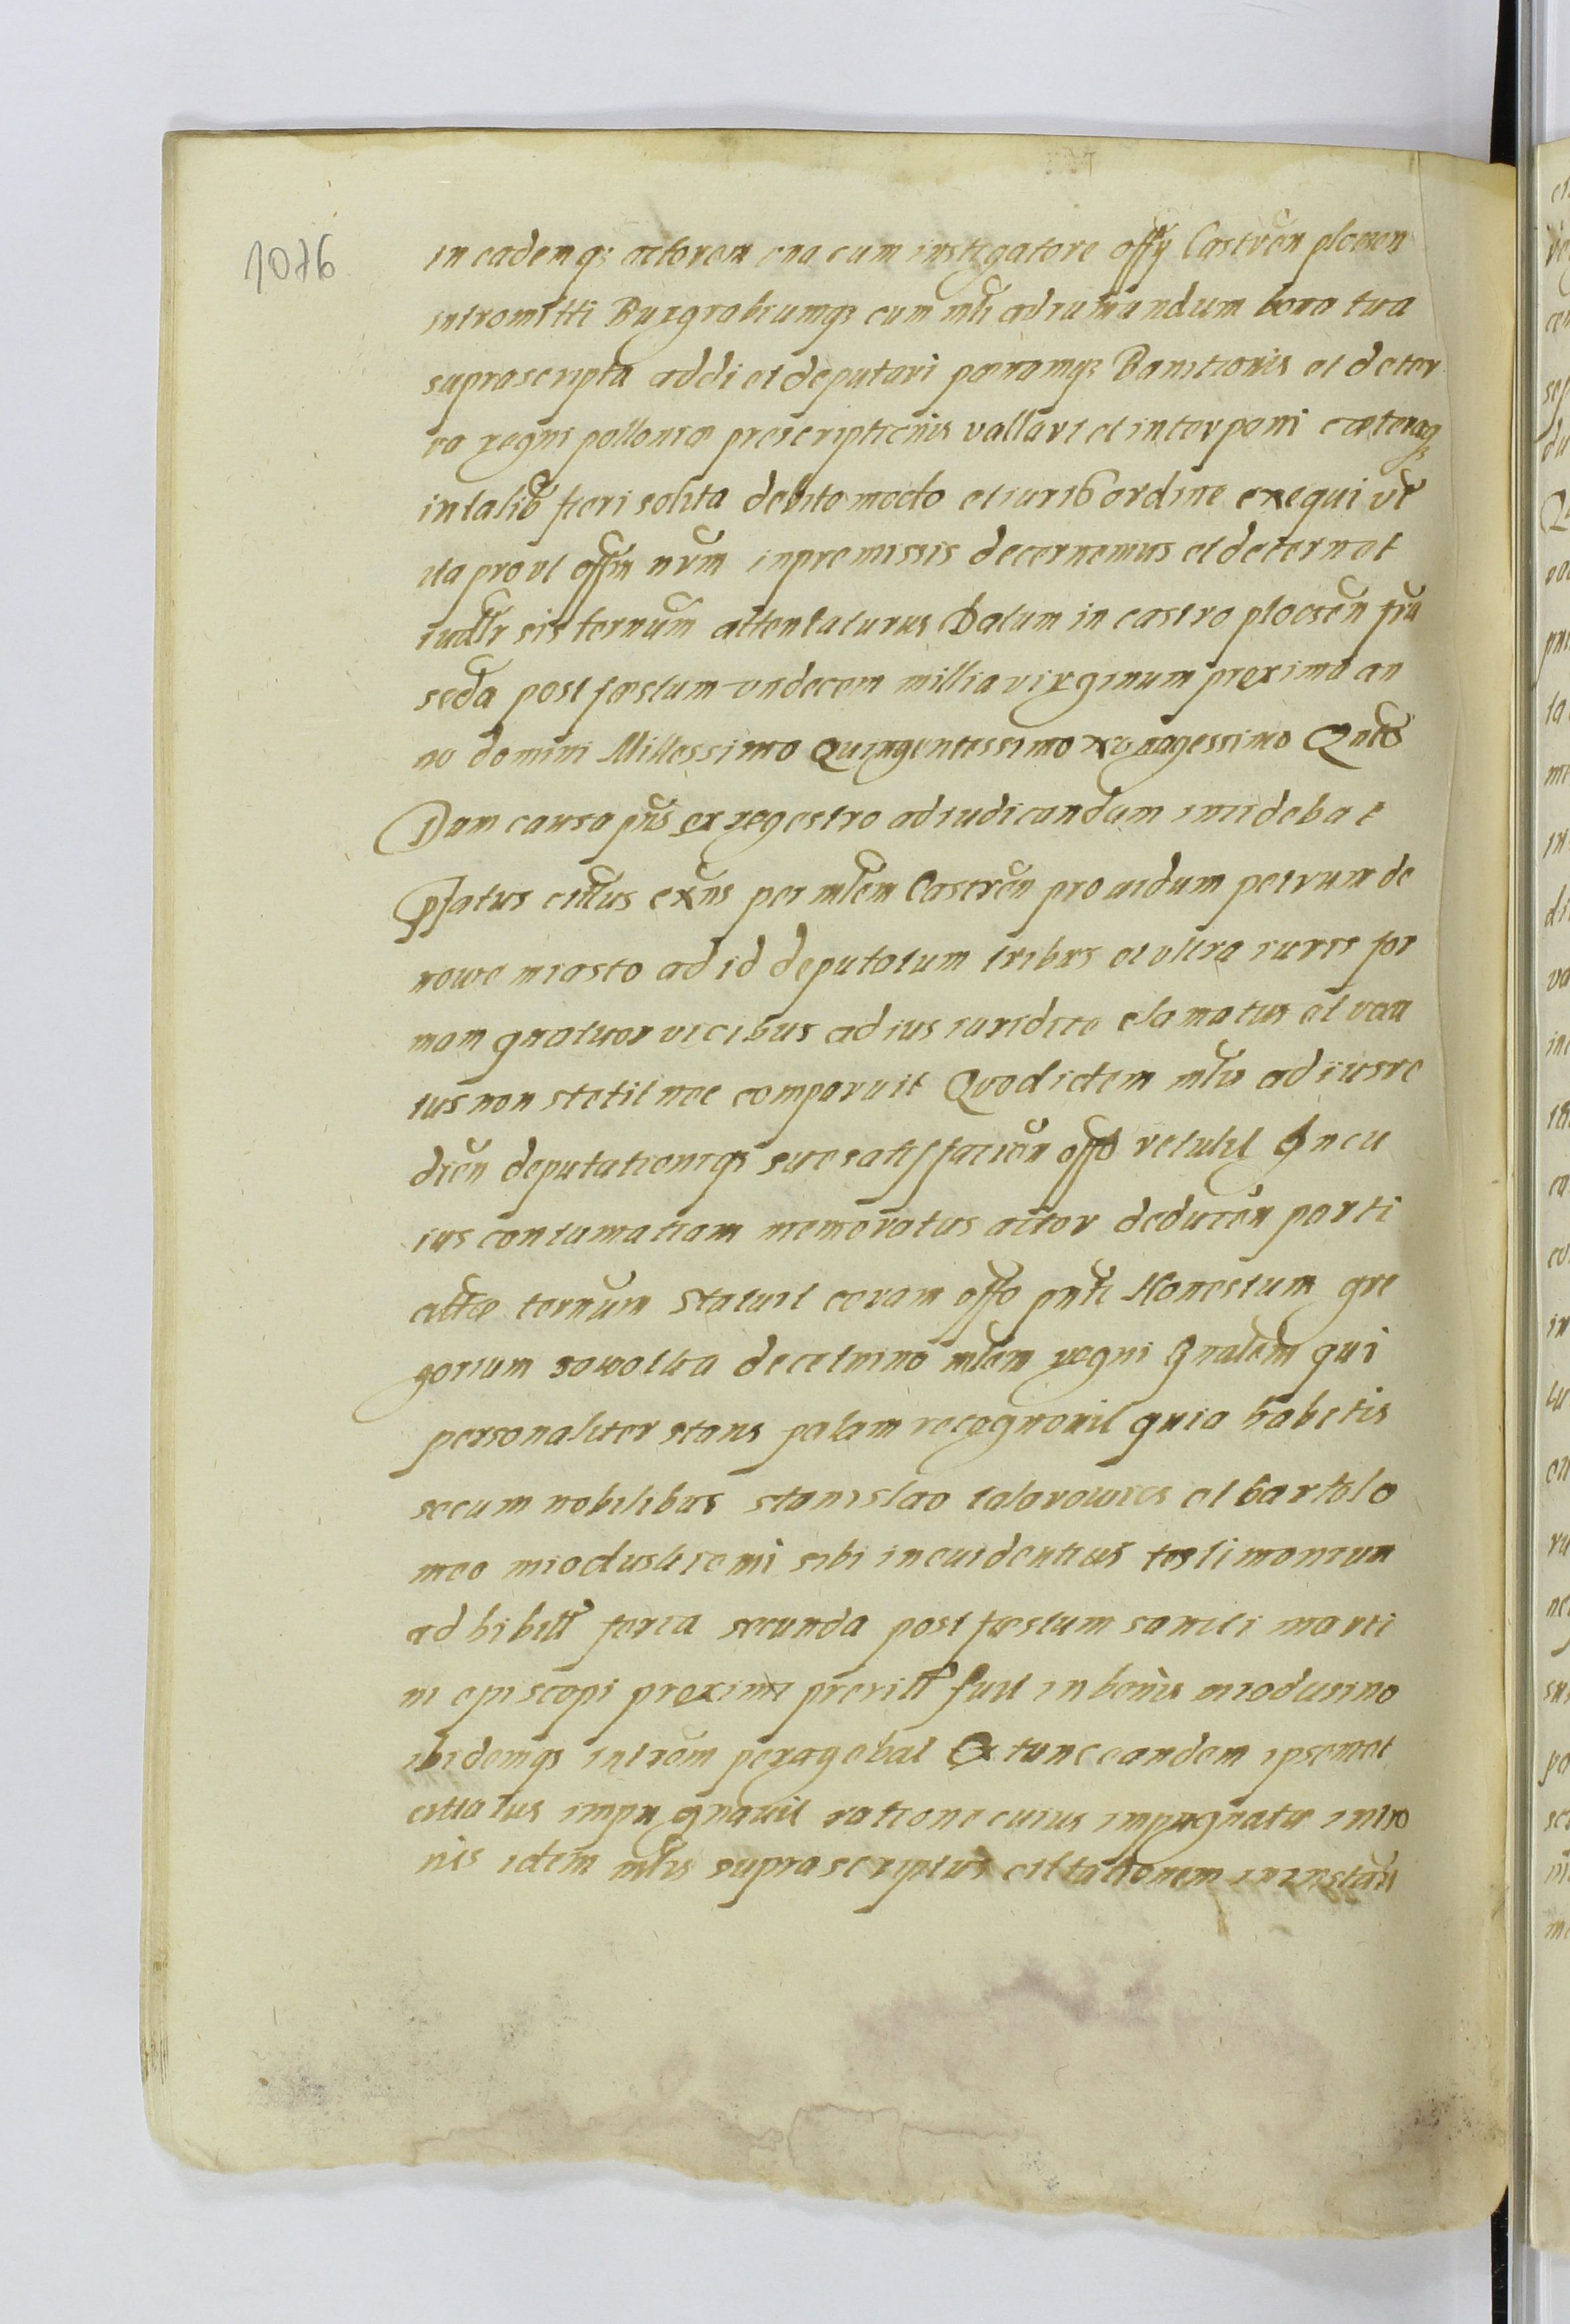 1076
in eademq3 actorem una cum instigatore offy Castren plocen
intromitti Burgrabiumq3 cum mli adiuvandum bona tua
suprascripta addi et deputari penamq3 Banitionis et deter
ra regni pollonie prescriptionis vallari et interponi ceteraq3
in talib fieri solita debito modo et iurib ordine exequi
ita prout offm nrm in premissis decernemus et decernat
sis ternum attentaturus Datum in castro plocsen fia
scda post festum undecem millia virginum proximo an
no domini Millessimo Quingentessimo Qnto
Dum causa pns ex regestro adiudicandum incidebat
pfatus citatus exns per mlem Castren prouidum petrum de
nowe miasto ad id deputatum tribus et ultra iuris for
mam quatuor vicibus ad ius iuridice clamatus et vaca
tus non stetit nec comparuit Quod idem mlis ad iusre
dien deputationiq3 sue satisfacien offo retulit In cu
ius contumatiam memoratus actor deducen parti
citate ternum statuit coram offo pnti Honestum gre
gorium sowolka de cetnino mlem regni gnalem qui
personaliter stans palam recognovit quia habitis
secum nobilibus stanislao et bartolo
meo sibi in euidentius testimonium
adhibitis feria secunda post festum sancti marti
ni episcopi proxime fuit in bonis miodusino
ibidemq3 introm peragebat Ex tunc eandem ipsemet
citatus impugnauit ratione cuius impugnate intro
nis idem mlis suprascriptus cittationem in instan